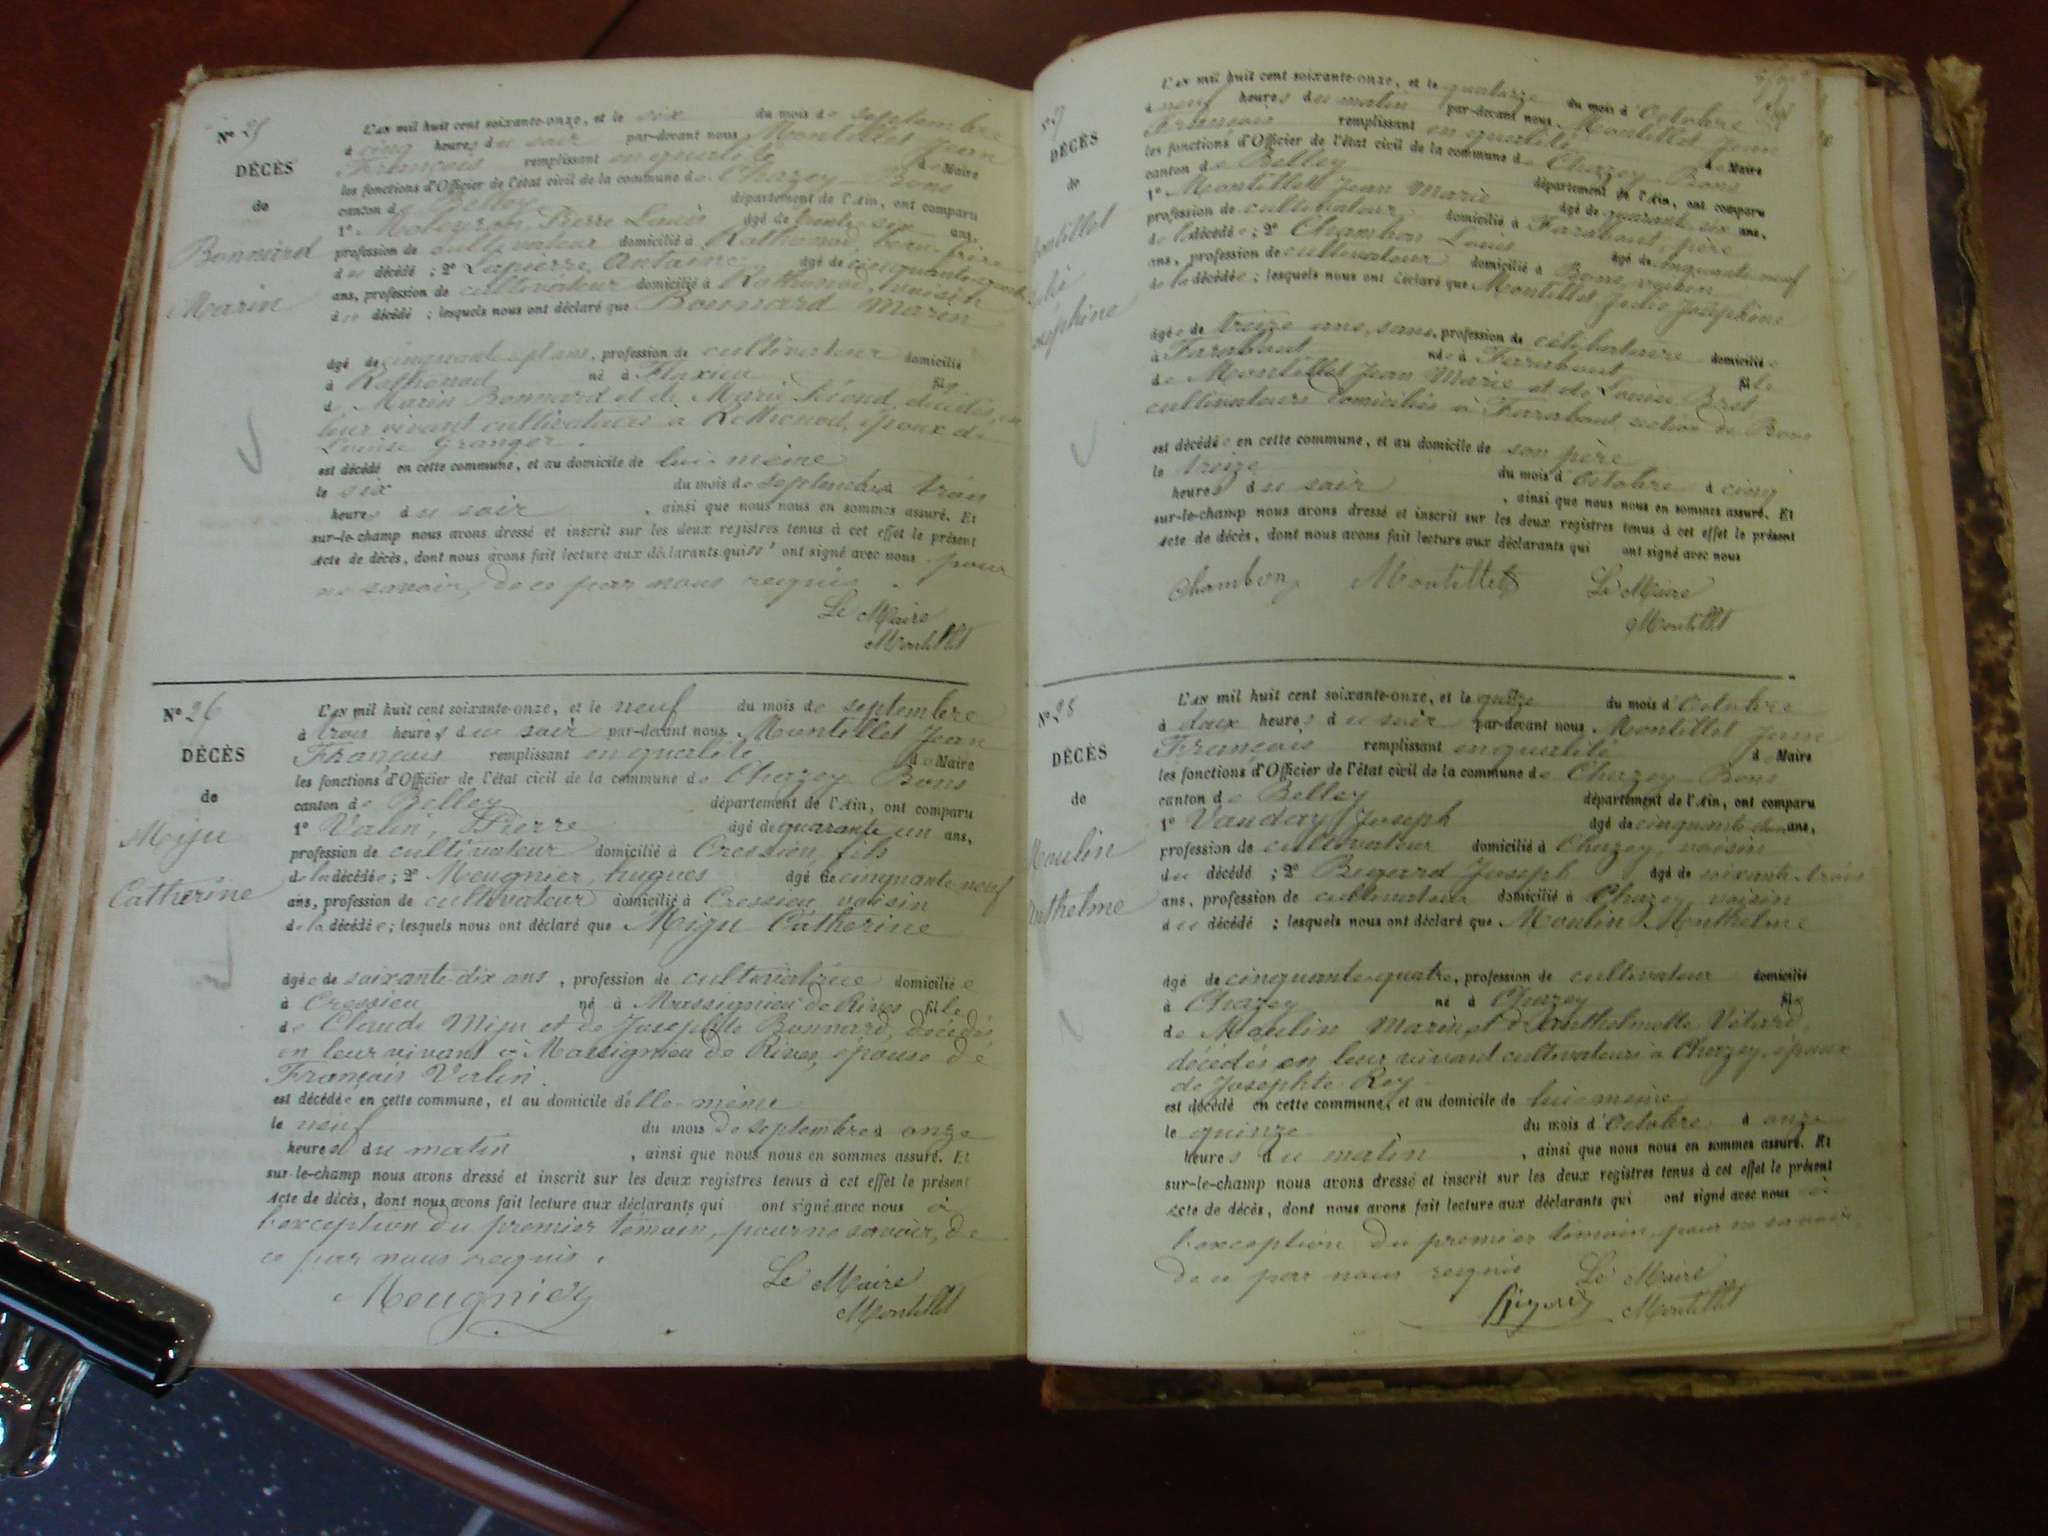 N° 25
DÉCÈS
de
Bonnard
Marin
L'an mil huit cent soixante-onze, et le six du mois de septembre
à cinq heures du soir par-devant nous Montillet Jean
François remplissant en qualité de Maire
les fonctions d'Officier de l'état civil de la commune de Chazey-Bons
canton de Belley département de l'Ain, ont comparu
1° Pierre Louis âgé de trente six ans,
profession de cultivateur domicilié à Rothonod, beau-frère
du décédé ; 2° Lapierre Antoine âgé de
ans, profession de cultivateur domicilié à Rothonod, voisin
du décédé ; lesquels nous ont déclaré que Bonnard Marin
âgé de cinquante sept ans, profession de cultivateur domicilié
à Rothonod né à Flaxieu fils
de Marin Bonnard et de Marie décédés, en
leur vivant cultivateurs à Rothonod, époux de
Louise Granger.
est décédé en cette commune, et au domicile de lui-même
le six du mois de septembre à trois
heures du soir, ainsi que nous nous en sommes assuré. Et
sur-le-champ nous avons dressé et inscrit sur les deux registres tenus à cet effet le présent
acte de décès, dont nous avons fait lecture aux déclarants qui n' ont signé avec nous pour
ne savoir, de ce par nous requis.
Le Maire
Montillet
N° 26
DÉCÈS
de
Miju
Catherine
L'an mil huit cent soixante-onze, et le neuf du mois de septembre
à trois heures du soir par-devant nous Montillet Jean
François remplissant en qualité de Maire
les fonctions d'Officier de l'état civil de la commune de Chazey-Bons
canton de Belley département de l'Ain, ont comparu
1° Valin, Pierre âgé de quarante un ans,
profession de cultivateur domicilié à Cressieu, fils
de la décédée ; 2° Meugnier, hugues âgé de cinquante neuf
ans, profession de cultivateur domicilié à Cressieu, voisin
de la décédée ; lesquels nous ont déclaré que Miju Catherine
âgée de soixante-dix ans, profession de cultivatrice domiciliée
à Cressieu né à Massignieu de Rives fille
de Claude Miju et de Josephte Bonnard, décédés,
en leur vivant à Massignieu de Rives, épouse de
François Valin.
est décédée en cette commune, et au domicile d'elle-même
le neuf du mois de septembre à onze
heures du matin, ainsi que nous nous en sommes assuré. Et
sur-le-champ nous avons dressé et inscrit sur les deux registres tenus à cet effet le présent
acte de décès, dont nous avons fait lecture aux déclarants qui ont signé avec nous à
l'exception du premier témoin, pour ne savoir, de
ce par nous requis.
Meugnier
Le Maire
Montillet
DÉCÈS
de
L'an mil huit cent soixante-onze, et le quatorze du mois d'Octobre
à neuf heures du matin par-devant nous Montillet Jean
François remplissant en qualité de Maire
les fonctions d'Officier de l'état civil de la commune de Chazey-Bons
canton de Belley département de l'Ain, ont comparu
1° Montillet Jean Marie âgé de quarante six ans,
profession de cultivateur domicilié à Farabout, père
de la décédée ; 2° Chambon Louis âgé de cinquante neuf
ans, profession de cultivateur domicilié à Bons, voisin
de la décédée ; lesquels nous ont déclaré que Montillet Julie Joséphine
âgée de treize ans, sans profession de célibataire domiciliée
à Farabout née à Farabout fille
de Montillet Jean Marie et de Louise Bret
cultivateurs domiciliés à Farabout, section de Bons
est décédée en cette commune, et au domicile de son père
le treize du mois d'Octobre à cinq
heures du soir, ainsi que nous nous en sommes assuré. Et
sur-le-champ nous avons dressé et inscrit sur les deux registres tenus à cet effet le présent
acte de décès, dont nous avons fait lecture aux déclarants qui ont signé avec nous
Chambon Montillet Le Maire
Montillet
N° 28
DÉCÈS
de
Moulin
Anthelme
L'an mil huit cent soixante-onze, et le du mois d'Octobre
à deux heures du soir par-devant nous Montillet Jean
François remplissant en qualité de Maire
les fonctions d'Officier de l'état civil de la commune de Chazey-Bons
canton de Belley département de l'Ain, ont comparu
1° Vauday Joseph âgé de cinquante ans,
profession de cultivateur domicilié à Chazey, voisin
du décédé ; 2° Bigard Joseph âgé de soixante-trois
ans, profession de cultivateur domicilié à Chazey, voisin
du décédé ; lesquels nous ont déclaré que Moulin Anthelme
âgé de cinquante-quatre, profession de cultivateur domicilié
à Chazey né à Chazey fils
de Moulin Marin et d'Anthelmette Vétard,
décédés en leur vivant cultivateurs à Chazey, époux
de Josephte Rey
est décédé en cette commune, et au domicile de lui-même
le quinze du mois d'Octobre à onze
heures du matin, ainsi que nous nous en sommes assuré. Et
sur-le-champ nous avons dressé et inscrit sur les deux registres tenus à cet effet le présent
acte de décès, dont nous avons fait lecture aux déclarants qui ont signé avec nous à
l'exception du premier témoin, pour ne savoir,
de ce par nous requis Le Maire
Bigard Montillet